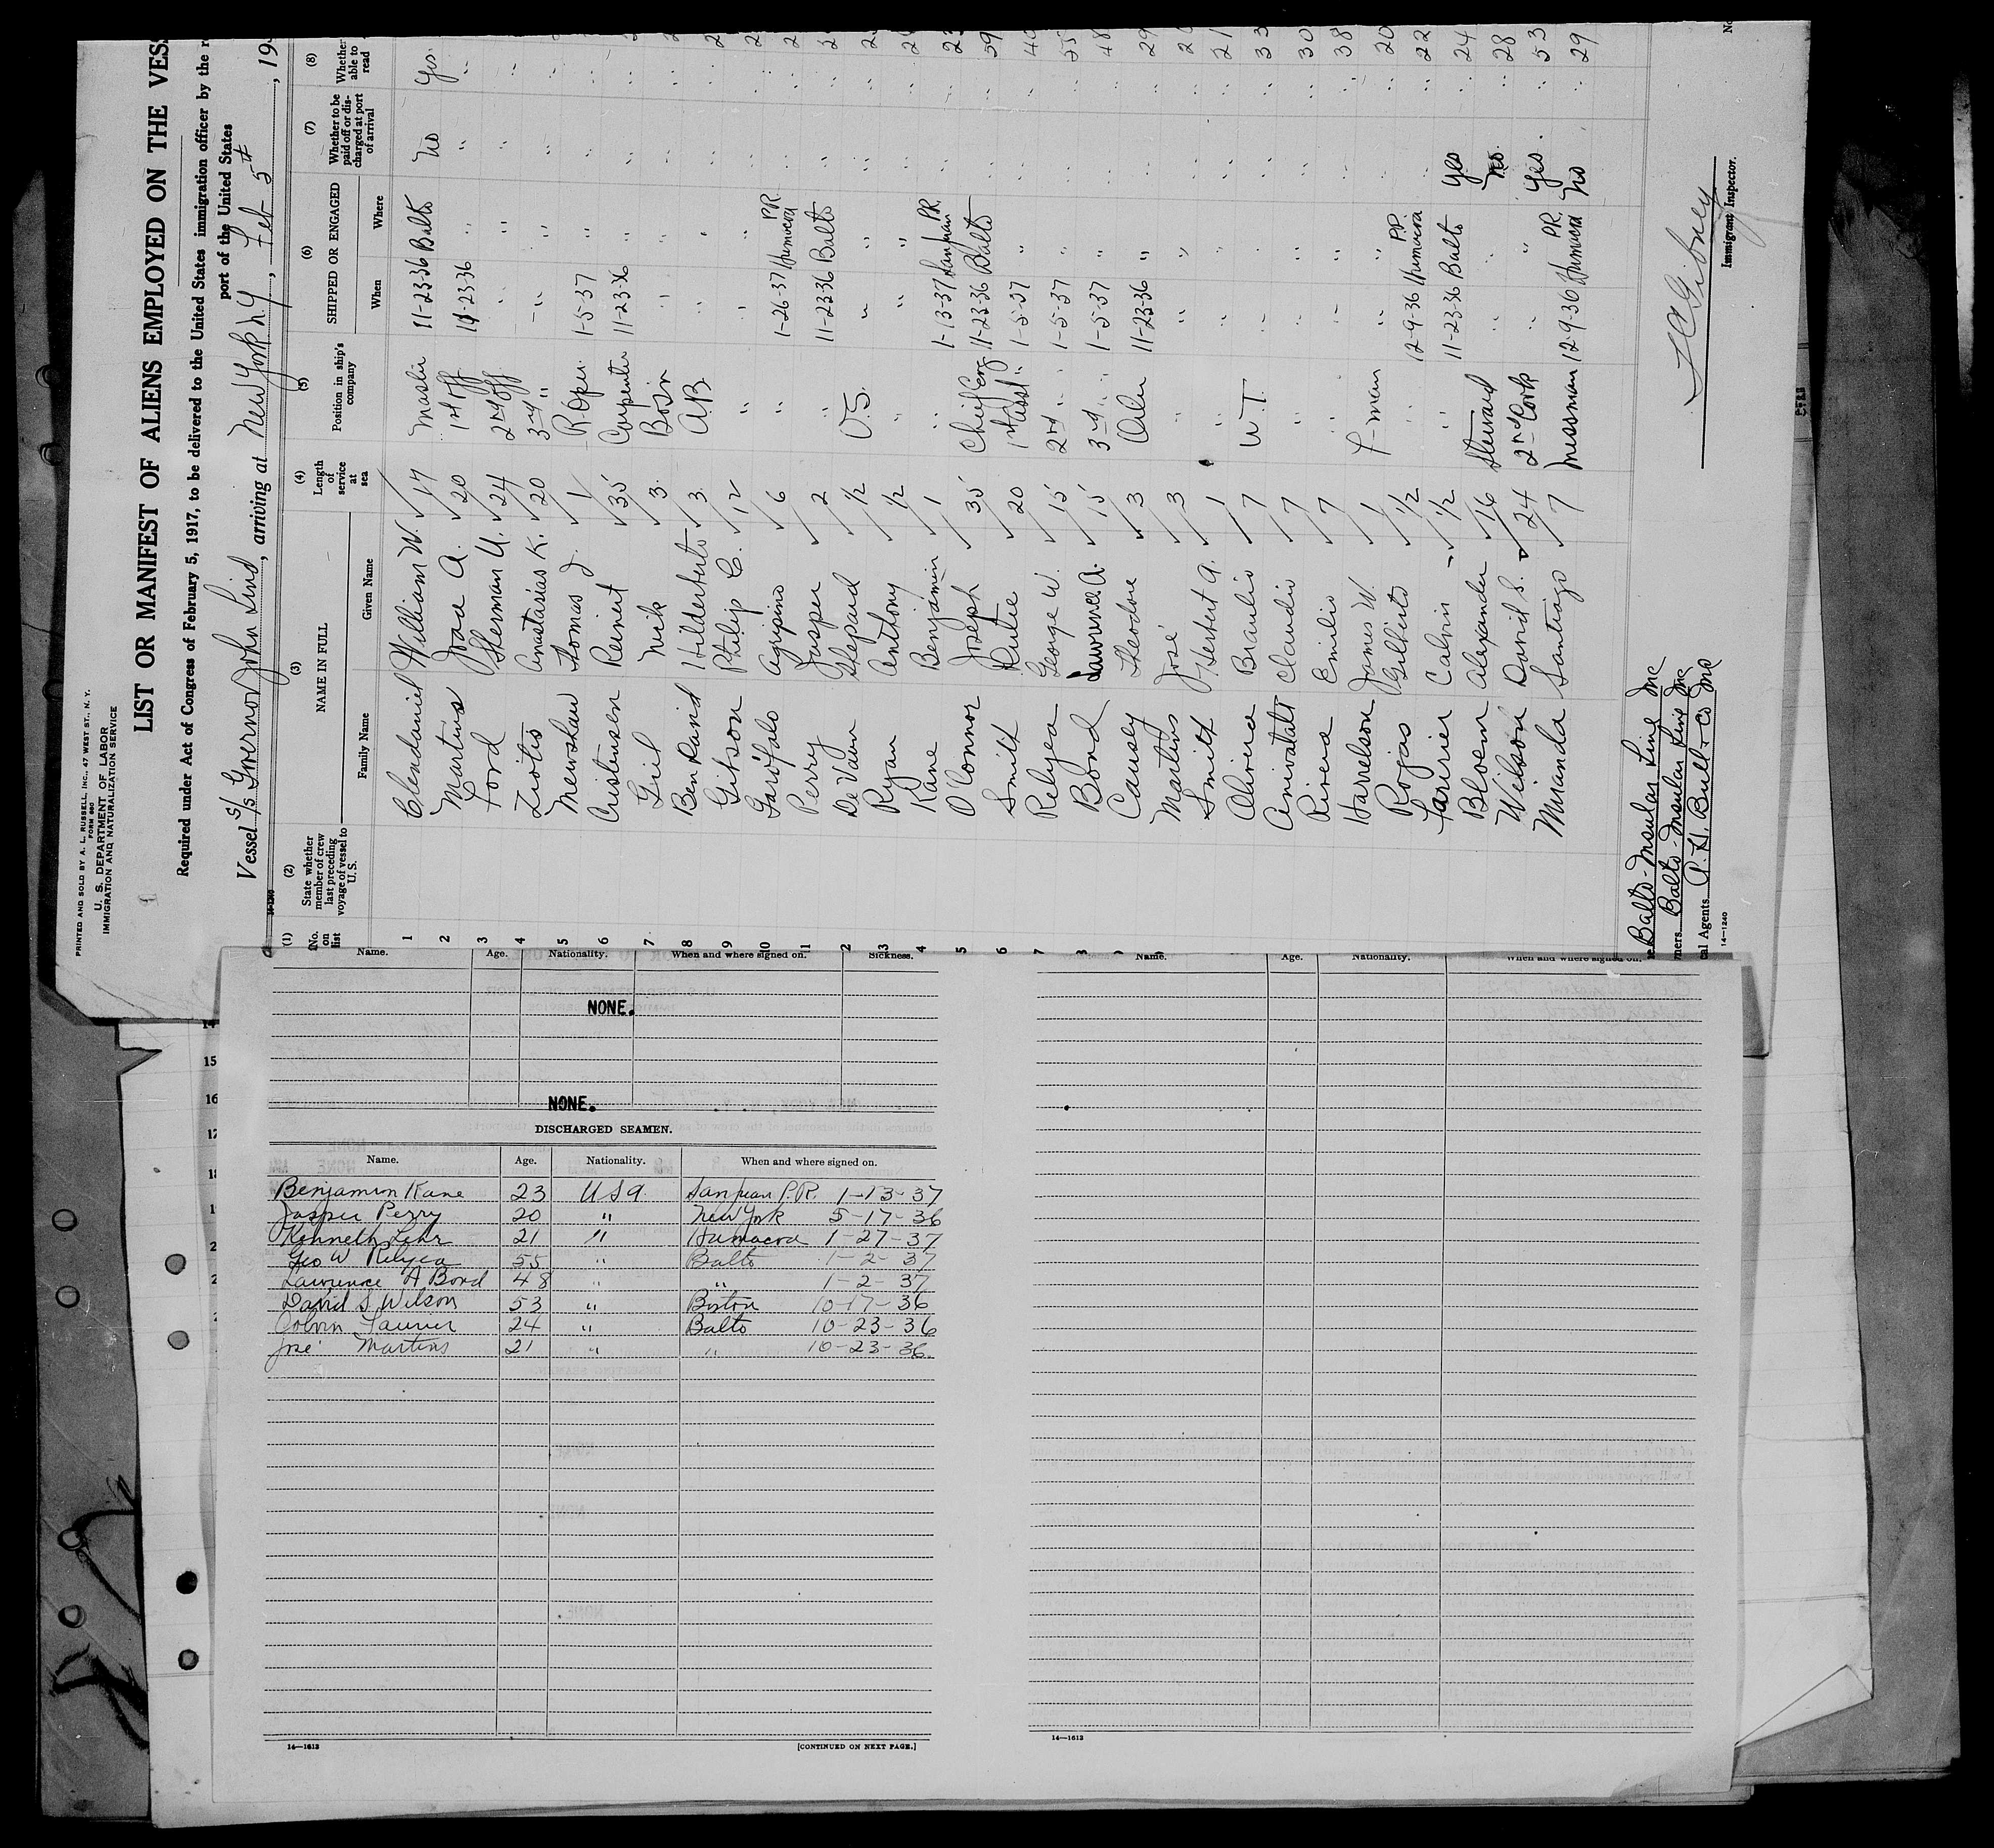 PRINTED AND SOLD BY A. L. RUSSELL, INC., 47 WEST ST., N. Y.
FORM 680
U. S. DEPARTMENT OF LABOR
IMMIGRATION AND NATURALIZATION SERVICE
LIST OR MANIFEST OF ALIENS EMPLOYED ON THE VESS
Required under Act of Congress of February 5, 1917, to be delivered to the United States immigration officer by the r
port of the United States
Vessel S/S Governor John Lind, arriving at New York N Y, Feb 5th, 19
(1) (2) (3) (4) (5) (6) (7) (8)
No. on list State whether member of crew last preceding voyage of vessel to U. S. NAME IN FULL Family Name Given Name Length of service at sea Position in ship's company SHIPPED OR ENGAGED When Where Whether to be paid off or discharged at port of arrival Whether able to read
1 Clendaniel William W. 17 Master 11-23-36 Balto No Yes
2 Martins Joao A. 20 1st off 11-23-36 " " "
3 Ford Sherman U. 24 2nd off " " " "
4 Ziotis Anastasias K. 20 3rd " " " " "
5 Mewshaw Thomas J. 1 R. Oper. 1-5-37 " " "
6 Cristensen Reinert 35 Carpenter 11-23-36 " " "
7 Giel Nick 3 Bosin " " " "
8 Ben David Hildertberto 3 A.B. " " " "
9 Gibson Philip C. 12 " " " " "
10 Garofalo Agripino 6 " 1-26-37 Humacoa P.R. " "
11 Perry Jasper 2 " 11-23-36 Balto " "
2 DeVaun Shepard 1/2 O.S. " " " "
3 Ryan Anthony 1/2 " " " " "
4 Kane Benjamin 1 " 1-13-37 San Juan P.R. " " 23
5 O'Connor Joseph 35 Chief Eng 11-23-36 Balto " " 59
6 Smith Rutie 20 1st Asst " 1-5-37 " " " 40
7 Relyea George W. 15 2nd " " 1-5-37 " " " 55
8 Bond Lawrence A. 15 3rd " " 1-5-37 " " " 48
Causey Theodore 3 Oiler 11-23-36 " " " 29
Martins José 3 " " " " "
Smith Herbert A. 1 " " " " " 21
Oliviera Braulio 7 W.T. " " " " 33
Claudio 7 " " " " " 30
Rivera Emilio 7 " " " " " 38
Harrelson James W. 1 F-man " " " " 20
Rojas Gilberto 1/2 " 12-9-36 Humacoa P.R. " " 22
Farrier Calvin 1/2 " 11-23-36 Balto Yes " 24
Bloem Alexander 16 Steward " " No. " 28
Wilson David S. 24 2nd Cook " " Yes. " 53
Miranda Santiago 7 Messman 12-9-36 Humacoa P.R. No " 29
Balto-Insular Line Inc
ners Balto-Insular Line Inc
cal Agents A. H. Bull & Co Inc
14-1240
Immigrant Inspector.
Name. Age. Nationality. When and where signed on. Sickness.
NONE.
NONE.
DISCHARGED SEAMEN.
Name. Age. Nationality. When and where signed on.
Benjamin Kane 23 USA. San Juan P.R. 1-13-37
Jasper Perry 20 " New York 5-17-36
Kenneth Lehr 21 " Humacoa 1-27-37
Geo W Relyea 55 " Balto 1-2-37
Lawrence A Bond 48 " " 1-2-37
David S Wilson 53 " Boston 10-17-36
Colvin Faurier 24 " Balto 10-23-36
José Martins 21 " " 10-23-36.
14—1613
[CONTINUED ON NEXT PAGE.]
Name. Age. Nationality. When and where signed on.
14—1613
14
15
16